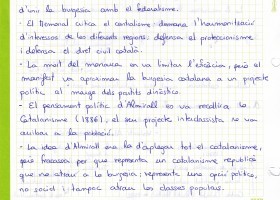 d'unir la burgesia amb el federalisme.
- El Memorial critica el centralisme i demana l'harmonització
d'interessos de les diferents regions, defensa el proteccionisme
i defensa el dret civil català.
- La mort del monarca en va limitar l'eficàcia, però el
manifest va aproximar la burgesia catalana a un projecte
polític al marge dels partits dinàstics.
- El pensament polític d'Almirall es va recollir a lo
Catalanisme (1886), el seu projecte interclassista no va
arribar a la població.
- La idea d'Almirall era la d'aplegar tot el catalanisme,
però fracassa per que representa un catalanisme republicà
que no atrau a la burgesia; representa una opció política,
no social i tampoc atrau les classes populars.